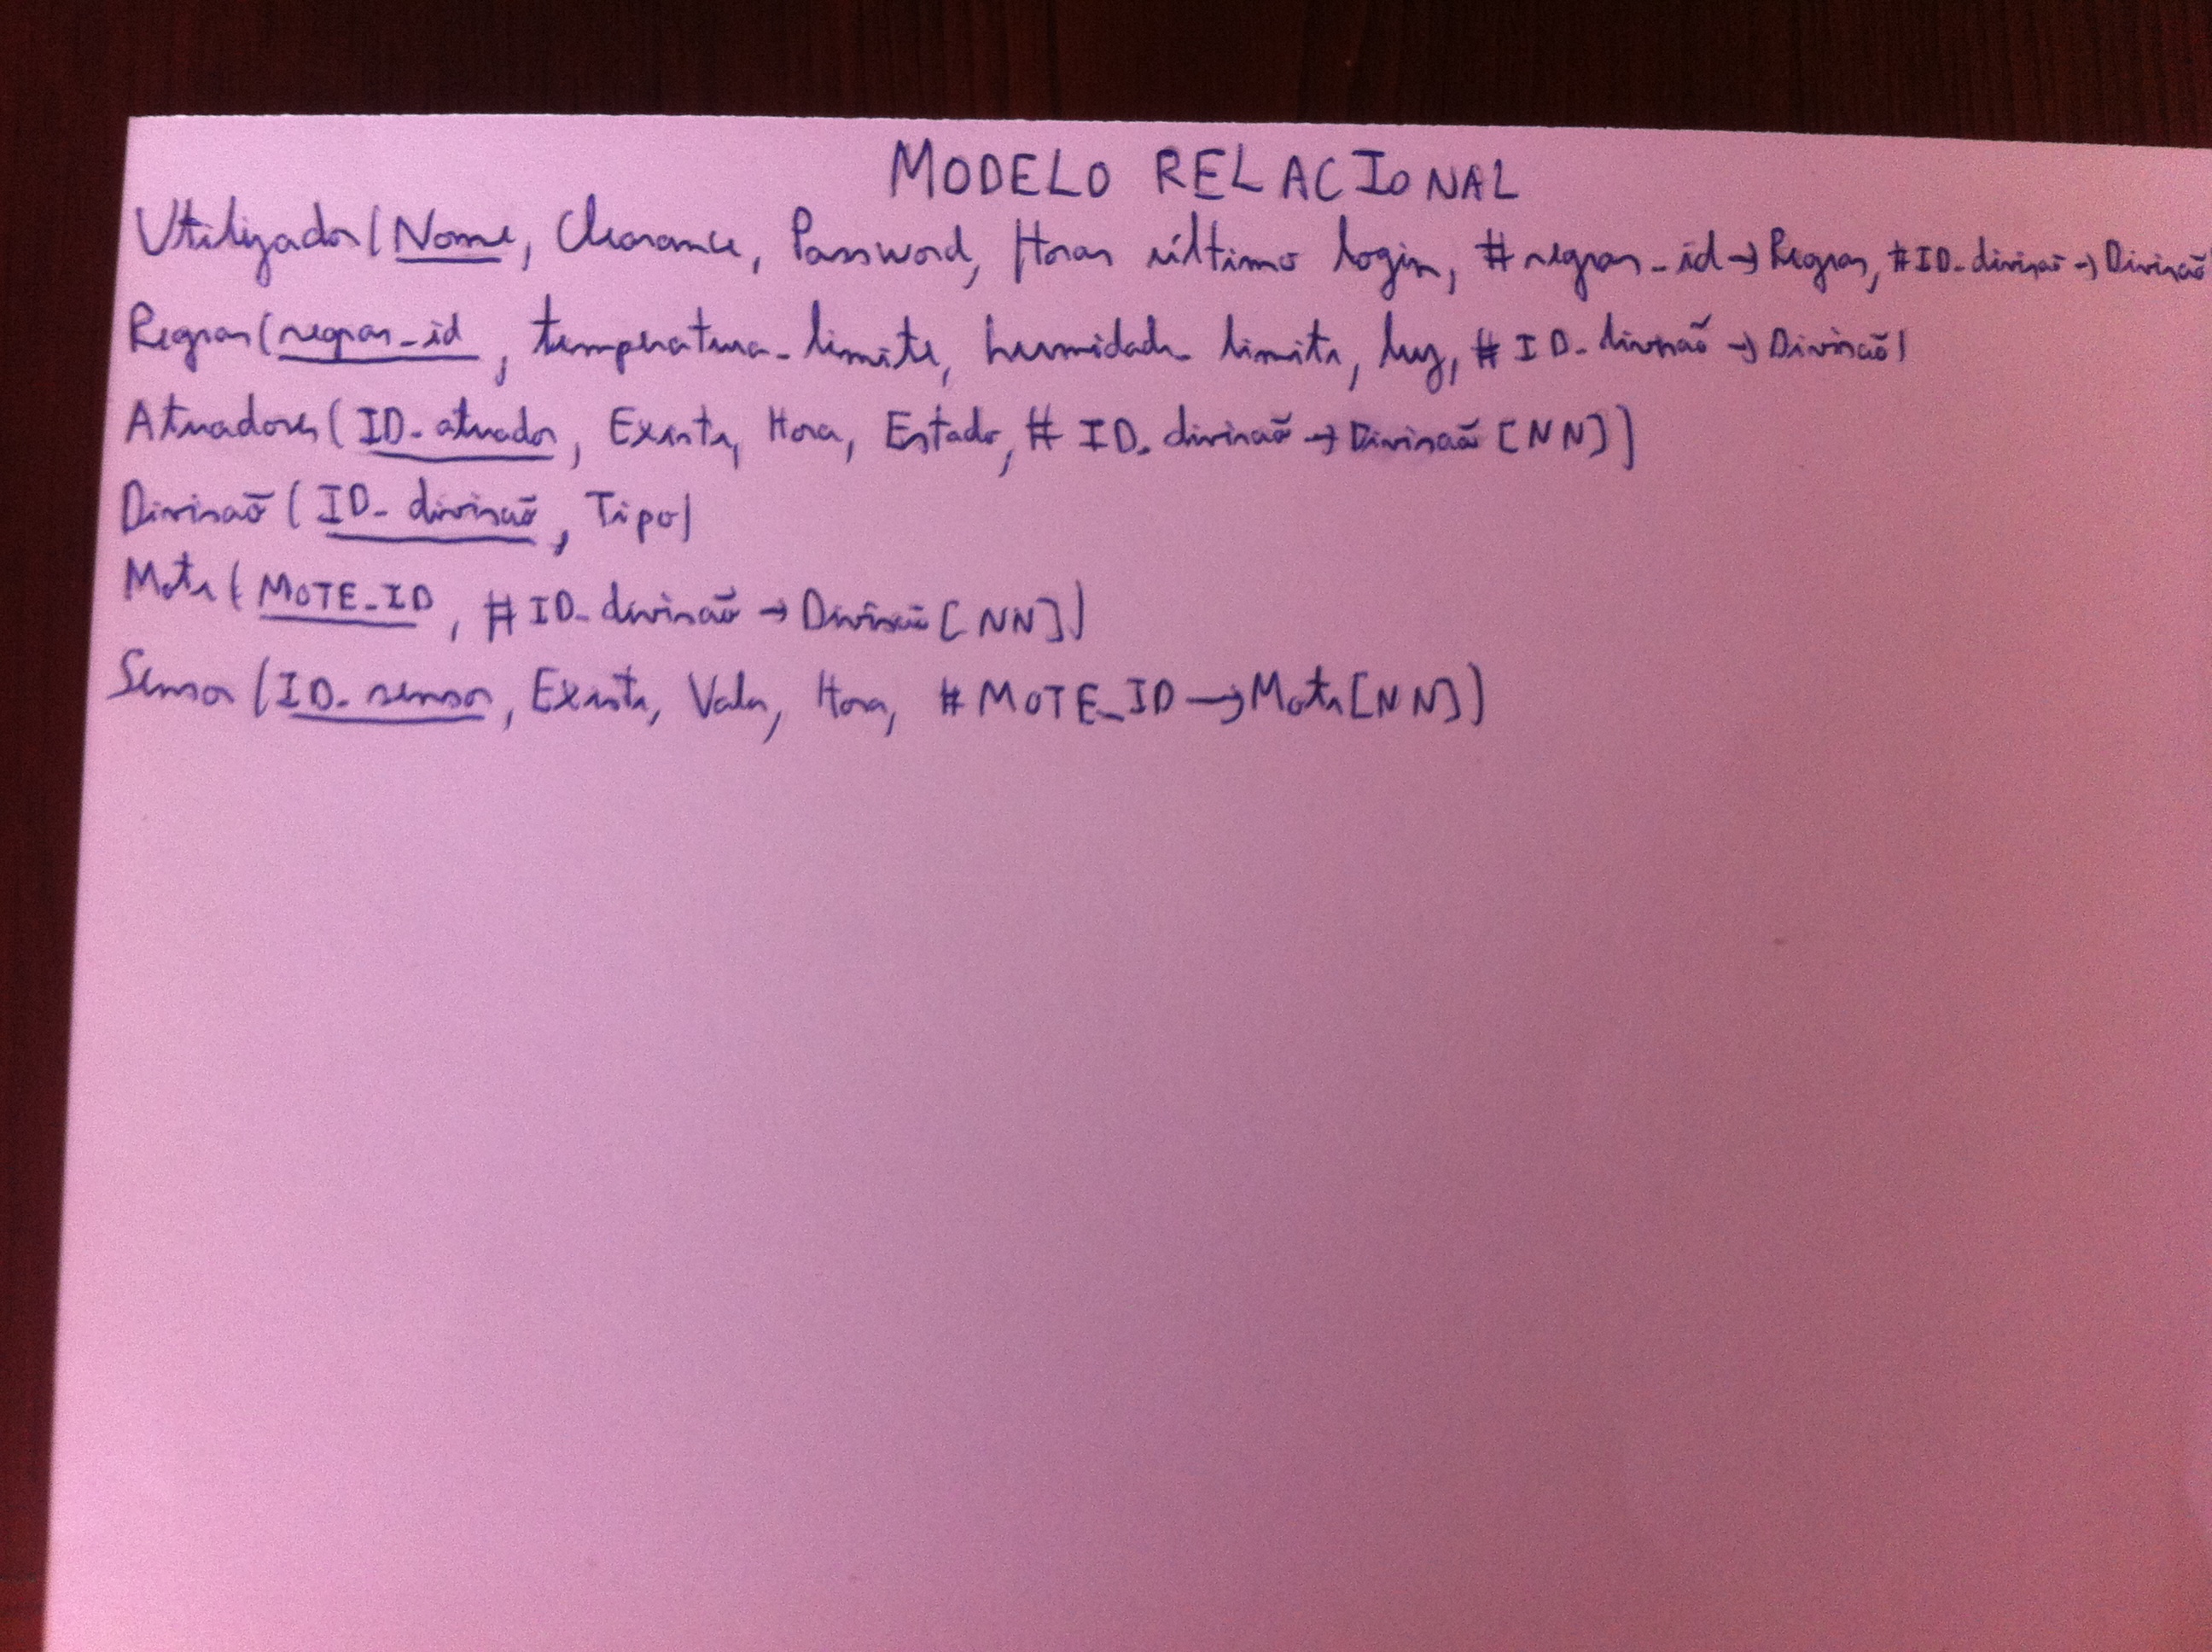 MODELO RELACIONAL
Utilizador (Nome, Clearance, Password, Horas último login, #regras_id → Regras, #ID_divisão → Divisão
Regras (regras_id, temperatura_limite, humidade_limite, luz, #ID_divisão → Divisão)
Atuadores (ID_atuador, Existe, Hora, Estado, #ID_divisão → Divisão [NN])
Divisão (ID_divisão, Tipo)
Mote (MOTE_ID, #ID_divisão → Divisão [NN])
Sensor (ID_sensor, Existe, Valor, Hora, #MOTE_ID → Mote [NN])